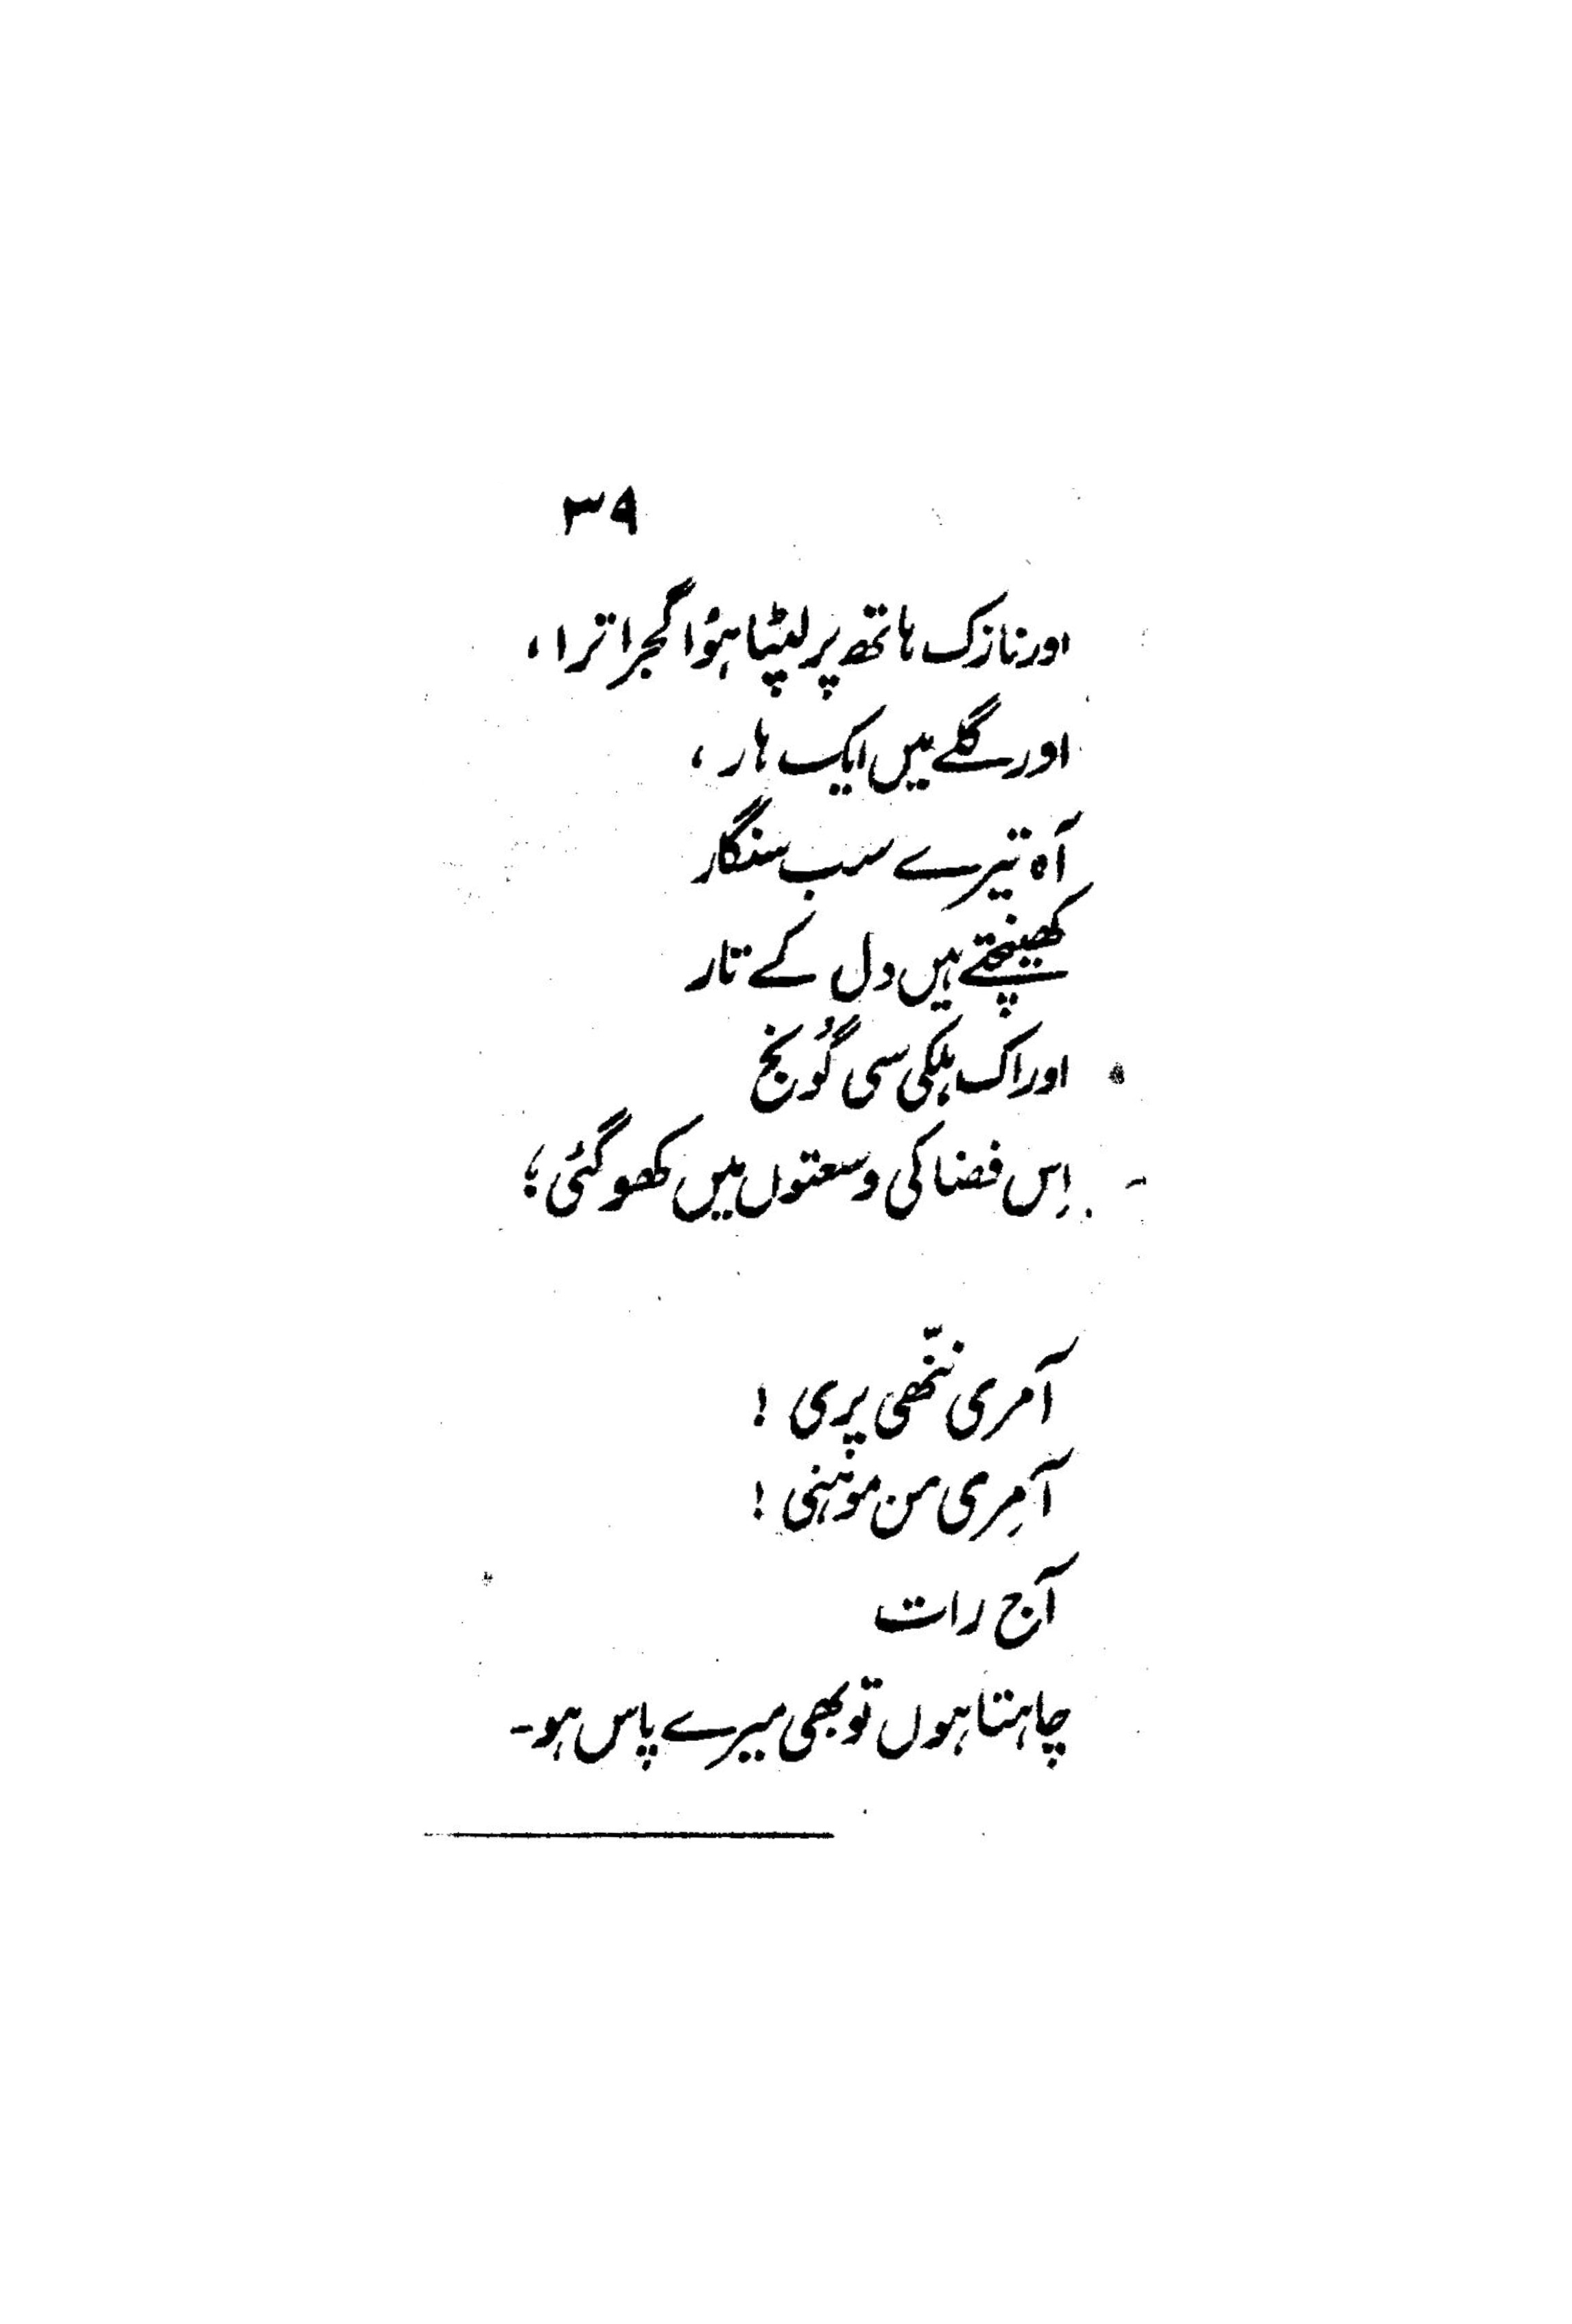 ۳۹
اور نازک ہاتھ پر لپٹا ہؤا گجرا ترا،
اور گلے میں ایک ہار،
آہ تیرے سب سنگار
کھینچتے ہیں دل کے تار
اور اک ہلکی سی گُونج
اِس فضا کی وسعتوں میں کھو گئی؛
آ مری ننّھی پری !
آ مِری من موہنی !
آج رات
چاہتا ہوں تو بھی میرے پاس ہو۔